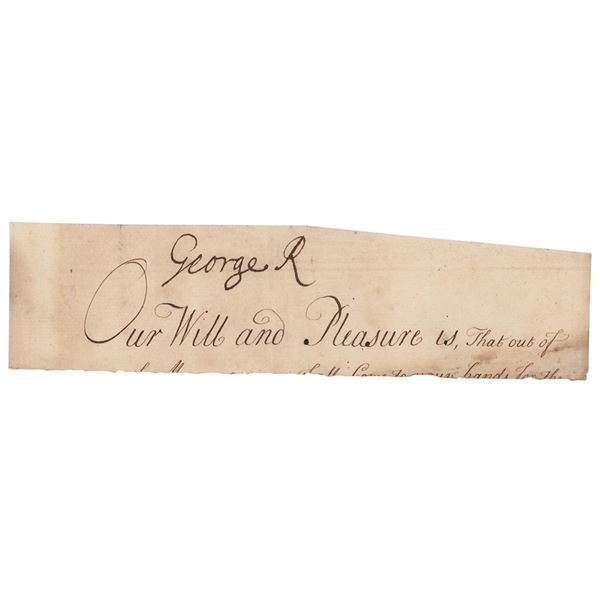 George R
Our Will and Pleasure is, That out of
shall Come to your hands for the